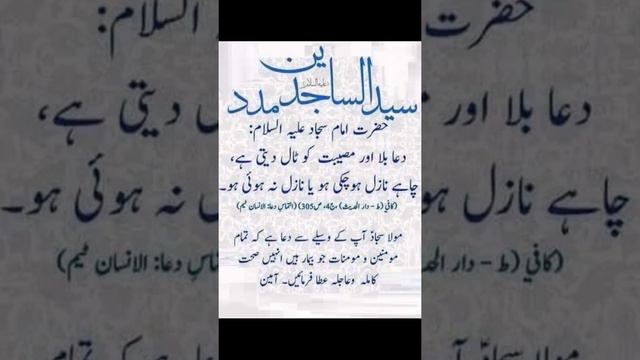 سید الساجدین مدد
علیہ السلام
حضرت امام سجاد علیہ السلام:
دعا بلا اور مصیبت کو ٹال دیتی ہے،
چاہے نازل ہوچکی ہو یا نازل نہ ہوئی ہو۔
(کافی (ط - دار الحدیث) ج4، ص305) (التماسِ دعا: الانسان ٹیم)
مولا سجادؑ آپ کے وسیلے سے دعا ہے کہ تمام
مومنین و مومنات جو بیمار ہیں انہیں صحت
کاملہ وعاجلہ عطا فرمائیں۔ آمین